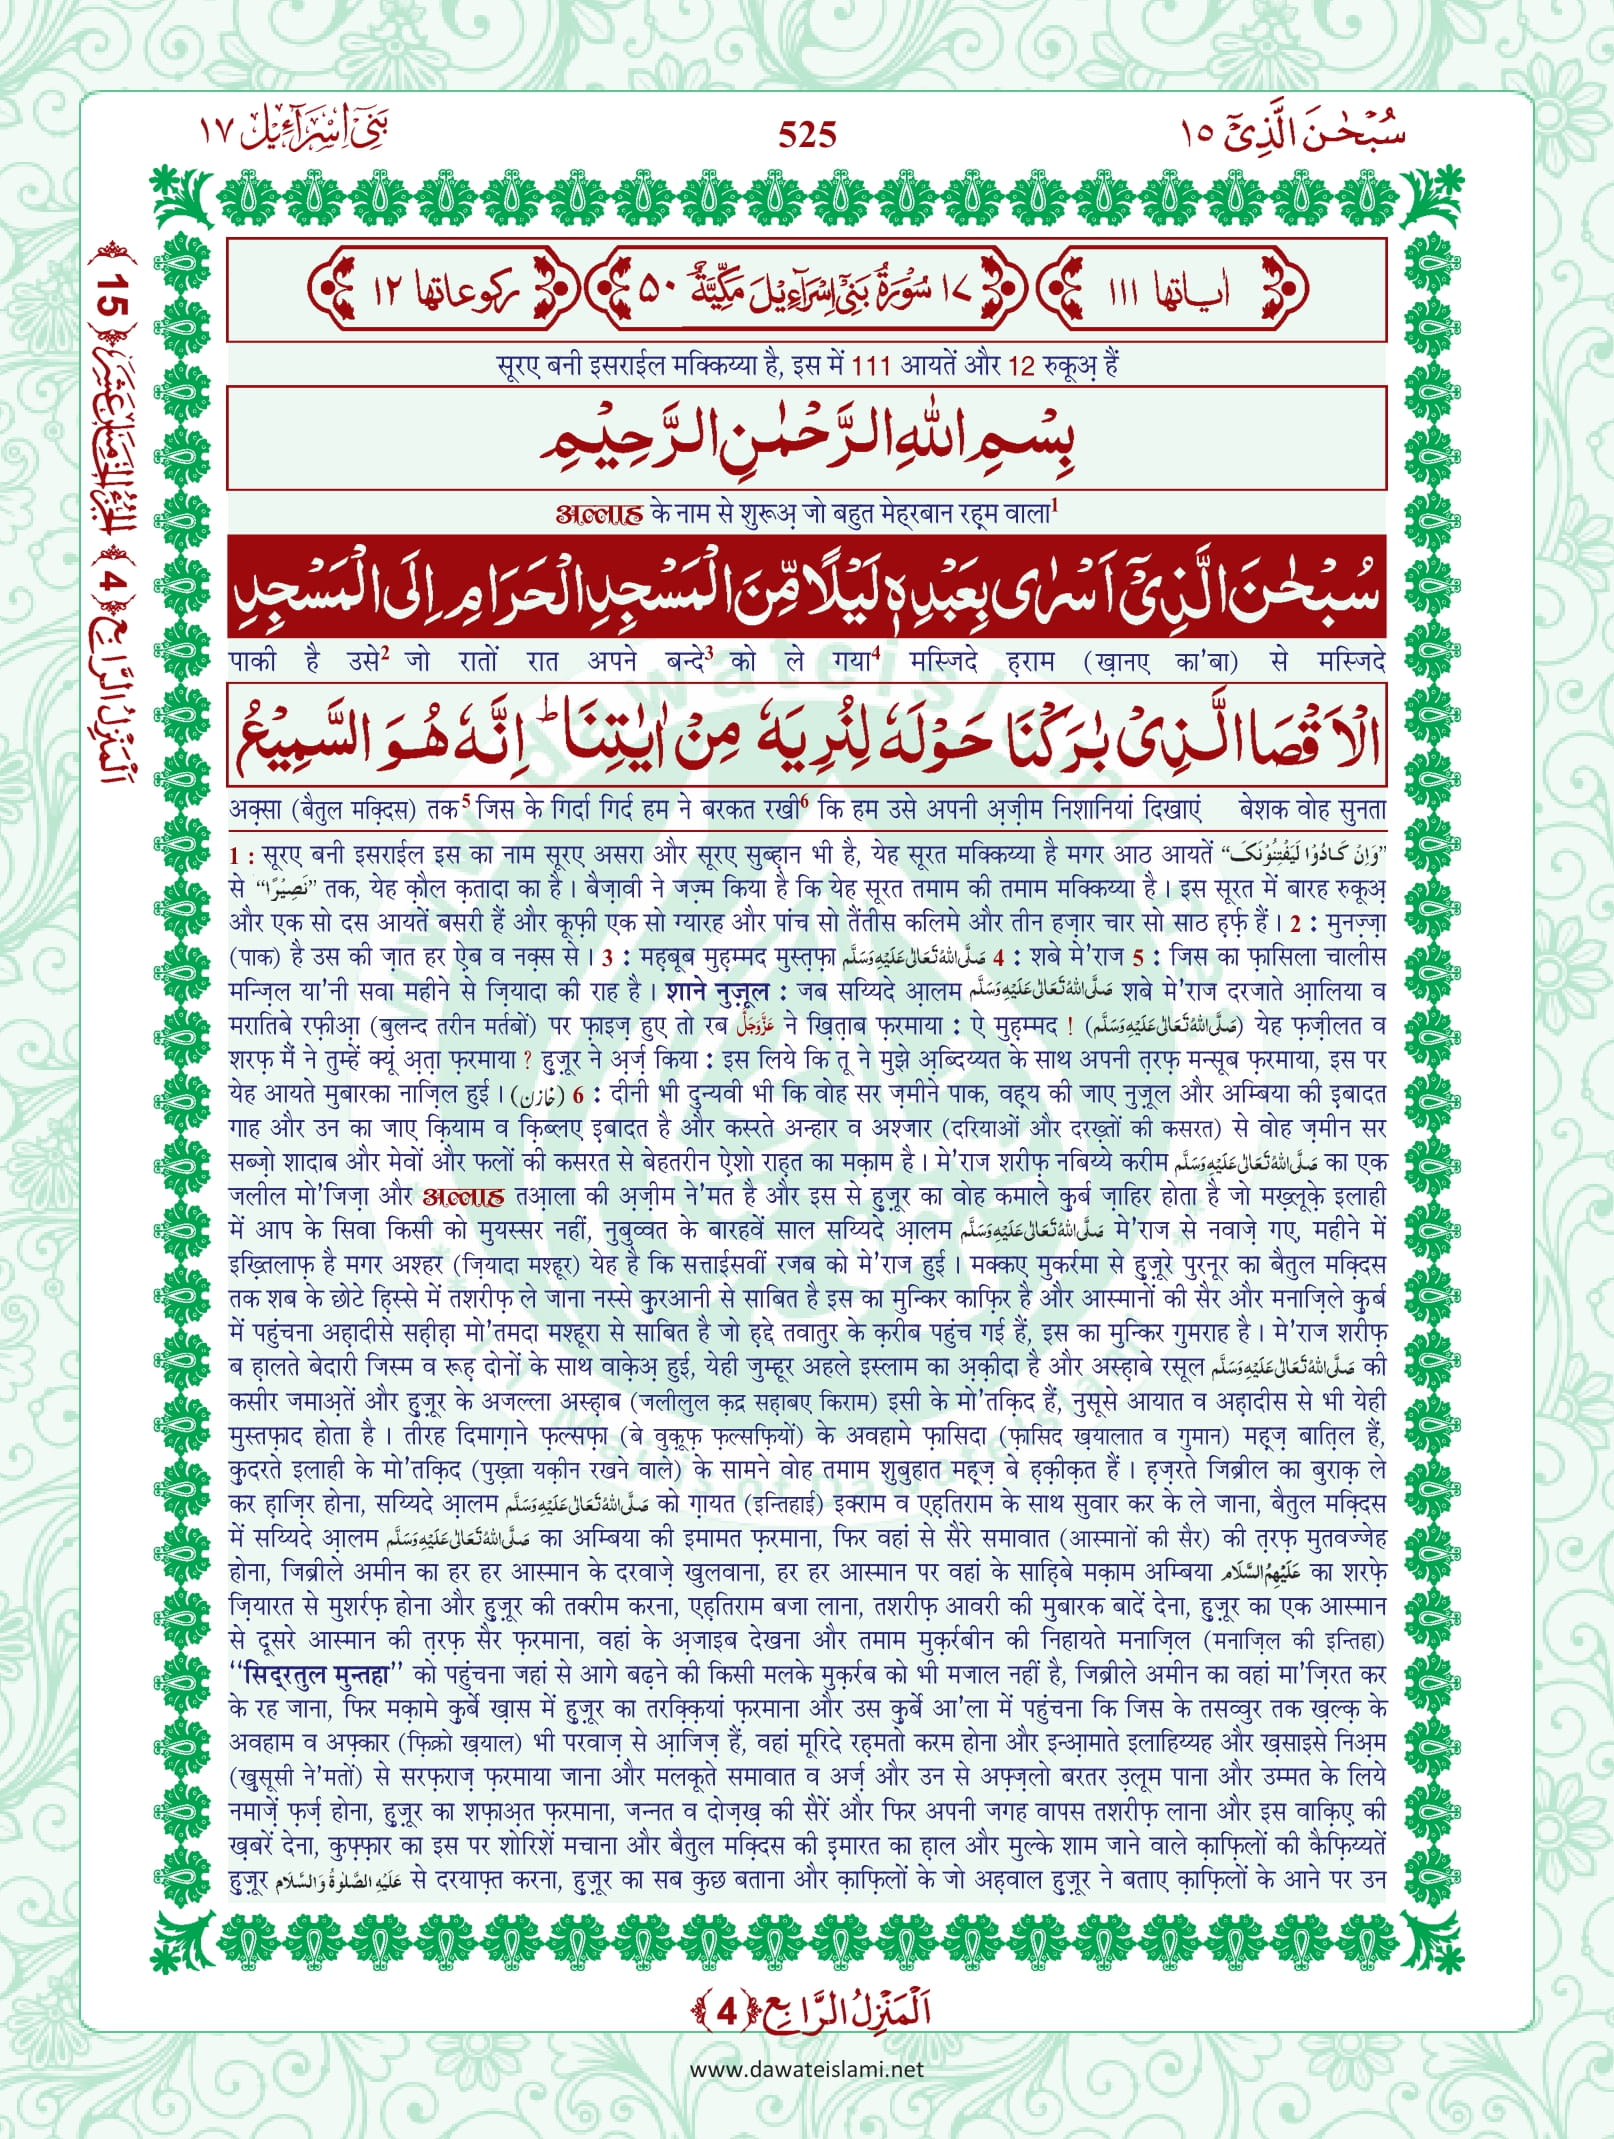 سُبْحٰنَ الَّذِیْۤ ١٥
525
بَنِیْۤ اِسْرَآءِیْل ١٧
اٰیاتها ١١١
١٧ سُوْرَةُ بَنِیْۤ اِسْرَآءِیْلَ مَكِّیَّةٌ ٥٠
ركوعاتها ١٢
सूरए बनी इसराईल मक्किय्या है, इस में 111 आयतें और 12 रुकूअ़ हैं
بِسْمِ اللّٰهِ الرَّحْمٰنِ الرَّحِیْمِ
अल्लाह के नाम से शुरूअ़ जो बहुत मेह्रबान रह़्म वाला1
سُبْحٰنَ الَّذِیْۤ اَسْرٰی بِعَبْدِهٖ لَیْلًا مِّنَ الْمَسْجِدِ الْحَرَامِ اِلَی الْمَسْجِدِ
पाकी है उसे2 जो रातों रात अपने बन्दे3 को ले गया4 मस्जिदे ह़राम (ख़ानए का'बा) से मस्जिदे
الْاَقْصَا الَّذِیْ بٰرَكْنَا حَوْلَهٗ لِنُرِیَهٗ مِنْ اٰیٰتِنَا ؕ اِنَّهٗ هُوَ السَّمِیْعُ
अक़्सा (बैतुल मक़्दिस) तक5 जिस के गिर्दा गिर्द हम ने बरकत रखी6 कि हम उसे अपनी अ़ज़ीम निशानियां दिखाएं बेशक वोह सुनता
1 : सूरए बनी इसराईल इस का नाम सूरए असरा और सूरए सुब्ह़ान भी है, येह सूरत मक्किय्या है मगर आठ आयतें “وَاِنْ كَادُوْا لَیَفْتِنُوْنَكَ”
से “نَصِیْرًا” तक, येह क़ौल क़तादा का है । बैज़ावी ने जज़्म किया है कि येह सूरत तमाम की तमाम मक्किय्या है । इस सूरत में बारह रुकूअ़
और एक सो दस आयतें बसरी हैं और कूफ़ी एक सो ग्यारह और पांच सो तैंतीस कलिमे और तीन हज़ार चार सो साठ ह़र्फ़ हैं । 2 : मुनज़्ज़ा
(पाक) है उस की ज़ात हर ऐ़ब व नक़्स से । 3 : मह़बूब मुह़म्मद मुस्त़फ़ा صَلَّی اللّٰهُ تَعَالٰی عَلَیْهِ وَسَلَّم 4 : शबे मे'राज 5 : जिस का फ़ासिला चालीस
मन्ज़िल या'नी सवा महीने से ज़ियादा की राह है । शाने नुज़ूल : जब सय्यिदे आ़लम صَلَّی اللّٰهُ تَعَالٰی عَلَیْهِ وَسَلَّم शबे मे'राज दरजाते आ़लिया व
मरातिबे रफ़ीआ़ (बुलन्द तरीन मर्तबों) पर फ़ाइज़ हुए तो रब عَزَّوَجَلَّ ने ख़ित़ाब फ़रमाया : ऐ मुह़म्मद ! (صَلَّی اللّٰهُ تَعَالٰی عَلَیْهِ وَسَلَّم) येह फ़ज़ीलत व
शरफ़ मैं ने तुम्हें क्यूं अ़त़ा फ़रमाया ? हुज़ूर ने अ़र्ज़ किया : इस लिये कि तू ने मुझे अ़ब्दिय्यत के साथ अपनी त़रफ़ मन्सूब फ़रमाया, इस पर
येह आयते मुबारका नाज़िल हुई । (خازن) 6 : दीनी भी दुन्यवी भी कि वोह सर ज़मीने पाक, वह़्य की जाए नुज़ूल और अम्बिया की इ़बादत
गाह और उन का जाए क़ियाम व क़िब्लए इ़बादत है और कस्रते अन्हार व अश्जार (दरियाओं और दरख़्तों की कसरत) से वोह ज़मीन सर
सब्ज़ो शादाब और मेवों और फलों की कसरत से बेहतरीन ऐ़शो राह़त का मक़ाम है । मे'राज शरीफ़ नबिय्ये करीम صَلَّی اللّٰهُ تَعَالٰی عَلَیْهِ وَسَلَّم का एक
जलील मो'जिज़ा और अल्लाह तआ़ला की अ़ज़ीम ने'मत है और इस से हुज़ूर का वोह कमाले क़ुर्ब ज़ाहिर होता है जो मख़्लूक़े इलाही
में आप के सिवा किसी को मुयस्सर नहीं, नुबुव्वत के बारहवें साल सय्यिदे आ़लम صَلَّی اللّٰهُ تَعَالٰی عَلَیْهِ وَسَلَّم मे'राज से नवाज़े गए, महीने में
इख़्तिलाफ़ है मगर अश्हर (ज़ियादा मश्हूर) येह है कि सत्ताईसवीं रजब को मे'राज हुई । मक्कए मुकर्रमा से हुज़ूरे पुरनूर का बैतुल मक़्दिस
तक शब के छोटे हि़स्से में तशरीफ़ ले जाना नस्से क़ुरआनी से साबित है इस का मुन्किर काफ़िर है और आस्मानों की सैर और मनाज़िले क़ुर्ब
में पहुंचना अह़ादीसे सह़ीह़ा मो'तमदा मश्हूरा से साबित है जो ह़द्दे तवातुर के क़रीब पहुंच गई हैं, इस का मुन्किर गुमराह है । मे'राज शरीफ़
ब ह़ालते बेदारी जिस्म व रूह़ दोनों के साथ वाक़ेअ़ हुई, येही जुम्हूर अहले इस्लाम का अ़क़ीदा है और अस्ह़ाबे रसूल صَلَّی اللّٰهُ تَعَالٰی عَلَیْهِ وَسَلَّم की
कसीर जमाअ़तें और हुज़ूर के अजल्ला अस्ह़ाब (जलीलुल क़द्र सह़ाबए किराम) इसी के मो'तक़िद हैं, नुसूसे आयात व अह़ादीस से भी येही
मुस्तफ़ाद होता है । तीरह दिमाग़ाने फ़ल्सफ़ा (बे वुक़ूफ़ फ़ल्सफ़ियों) के अवहामे फ़ासिदा (फ़ासिद ख़यालात व गुमान) मह़्ज़ बात़िल हैं,
क़ुदरते इलाही के मो'तक़िद (पुख़्ता यक़ीन रखने वाले) के सामने वोह तमाम शुबुहात मह़्ज़ बे ह़क़ीक़त हैं । ह़ज़रते जिब्रील का बुराक़ ले
कर ह़ाज़िर होना, सय्यिदे आ़लम صَلَّی اللّٰهُ تَعَالٰی عَلَیْهِ وَسَلَّم को ग़ायत (इन्तिहाई) इक्राम व एह़तिराम के साथ सुवार कर के ले जाना, बैतुल मक़्दिस
में सय्यिदे आ़लम صَلَّی اللّٰهُ تَعَالٰی عَلَیْهِ وَسَلَّم का अम्बिया की इमामत फ़रमाना, फिर वहां से सैरे समावात (आस्मानों की सैर) की त़रफ़ मुतवज्जेह
होना, जिब्रीले अमीन का हर हर आस्मान के दरवाज़े खुलवाना, हर हर आस्मान पर वहां के साह़िबे मक़ाम अम्बिया عَلَیْهِمُ السَّلَام का शरफ़े
ज़ियारत से मुशर्रफ़ होना और हुज़ूर की तक्रीम करना, एह़तिराम बजा लाना, तशरीफ़ आवरी की मुबारक बादें देना, हुज़ूर का एक आस्मान
से दूसरे आस्मान की त़रफ़ सैर फ़रमाना, वहां के अ़जाइब देखना और तमाम मुक़र्रबीन की निहायते मनाज़िल (मनाज़िल की इन्तिहा)
‘‘सिद्रतुल मुन्तहा’’ को पहुंचना जहां से आगे बढ़ने की किसी मलके मुक़र्रब को भी मजाल नहीं है, जिब्रीले अमीन का वहां मा'ज़िरत कर
के रह जाना, फिर मक़ामे क़ुर्बे ख़ास में हुज़ूर का तरक़्क़ियां फ़रमाना और उस क़ुर्बे आ'ला में पहुंचना कि जिस के तसव्वुर तक ख़ल्क़ के
अवहाम व अफ़्कार (फ़िक्रो ख़याल) भी परवाज़ से आ़जिज़ हैं, वहां मूरिदे रह़मतो करम होना और इन्आ़माते इलाहिय्यह और ख़साइसे निअ़म
(ख़ुसूसी ने'मतों) से सरफ़राज़ फ़रमाया जाना और मलकूते समावात व अर्ज़ और उन से अफ़्ज़लो बरतर उ़लूम पाना और उम्मत के लिये
नमाज़ें फ़र्ज़ होना, हुज़ूर का शफ़ाअ़त फ़रमाना, जन्नत व दोज़ख़ की सैरें और फिर अपनी जगह वापस तशरीफ़ लाना और इस वाक़िए की
ख़बरें देना, कुफ़्फ़ार का इस पर शोरिशें मचाना और बैतुल मक़्दिस की इमारत का ह़ाल और मुल्के शाम जाने वाले क़ाफ़िलों की कैफ़िय्यतें
हुज़ूर عَلَیْهِ الصَّلٰوةُ وَالسَّلَام से दरयाफ़्त करना, हुज़ूर का सब कुछ बताना और क़ाफ़िलों के जो अह़वाल हुज़ूर ने बताए क़ाफ़िलों के आने पर उन
اَلْمَنْزِلُ الرَّابِع ﴿4﴾
اَلْجُزْءُ الْخَامِسَ عَشَرَ ﴿15﴾
اَلْمَنْزِلُ الرَّابِع ﴿4﴾
www.dawateislami.net